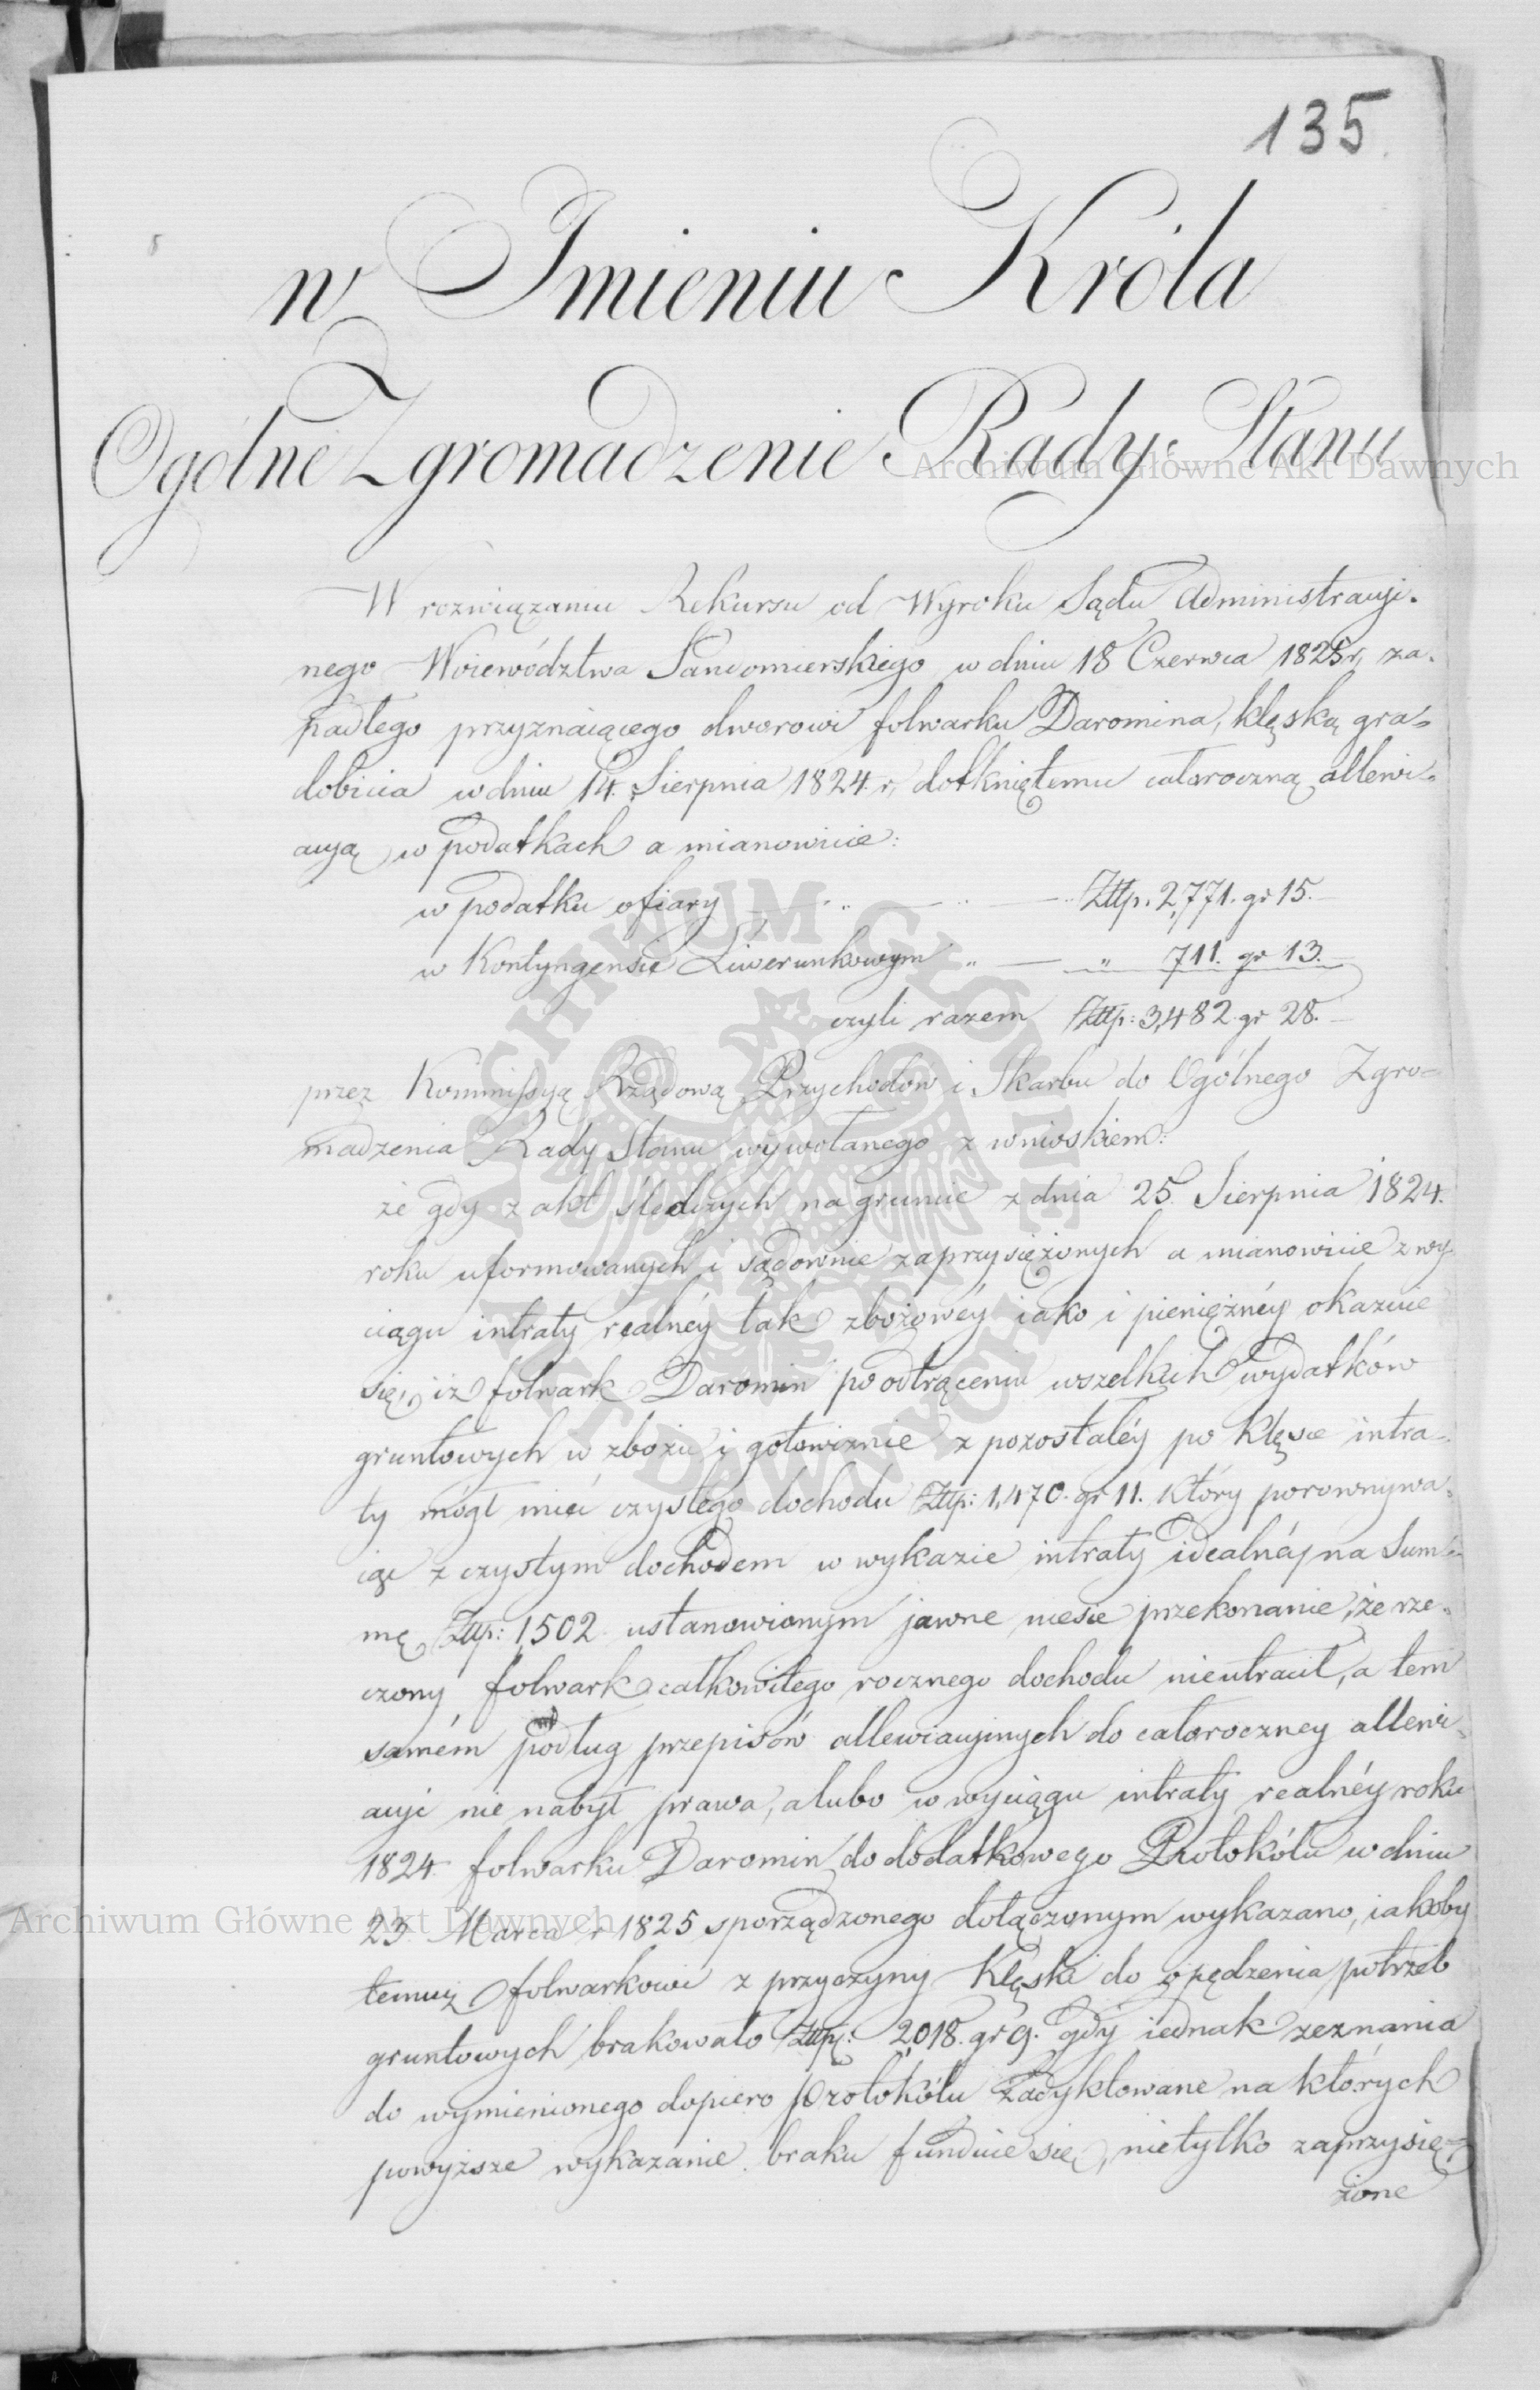 135.
w Imieniu Króla
Ogólne Zgromadzenie Rady Stanu
W rozwiązaniu Rekursu od Wyroku Sądu Administracyi-
nego Woiewództwa Sandomierskiego w dniu 18 Czerwca 1825 r, za-
padłego przyznaiącego dworowi folwarku Daromina, klęską gra-
dobicia w dniu 14. Sierpnia 1824. r, dotkniętemu całoroczną allewi-
acyą w podatkach a mianowicie:
w podatku ofiary Złtp. 2,771. gr 15.
w Kontyngensie Liwerunkowym „ „ 711. gr 13.
czyli razem Złtp: 3,482. gr 28.
przez Kommissyą Rządową Przychodów i Skarbu do Ogólnego Zgro-
madzenia Rady Stanu wywołanego z wnioskiem:
że gdy z akt śledczych na gruncie z dnia 25. Sierpnia 1824.
roku uformowanych i sądownie zaprzysiężonych a mianowicie z wy-
ciągu intraty realnéy tak zbożowéy iako i pieniężnéy okazuie
się, iż folwark Daromin po odtrąceniu wszelkich wydatków
gruntowych w zbożu i gotowiznie z pozostałéy po klęsce intra-
ty mógł mieć czystego dochodu Złtp: 1,470. gr 11. który porownywa-
iąc z czystym dochodem w wykazie intraty idealnéj na Sum-
mę Złtp: 1502 ustanowionym jawne niesie przekonanie, że rze-
czony folwark całkowitego rocznego dochodu nieutracił, a tem
samém podług przepisów allewiacyinych do całoroczney allewi-
acyi nie nabył prawa, a lubo w wyciągu intraty realnéy roku
1824 folwarku Daromin do dodatkowego Protokółu w dniu
23 Marca r 1825 sporządzonego dołączonym wykazano, iakoby
temuż folwarkowi z przyczyny Klęski do opędzenia potrzeb
gruntowych brakowało Złtp: 2,018. gr 9. gdy iednak zeznania
do wymienionego dopiero protokółu zadyktowane na których
powyższe wykazanie braku funduie się, nietylko zaprzysię-
żone
Archiwum Główne Akt Dawnych
Archiwum Główne Akt Dawnych
ARCHIWUM GŁÓWNE AKT DAWNYCH